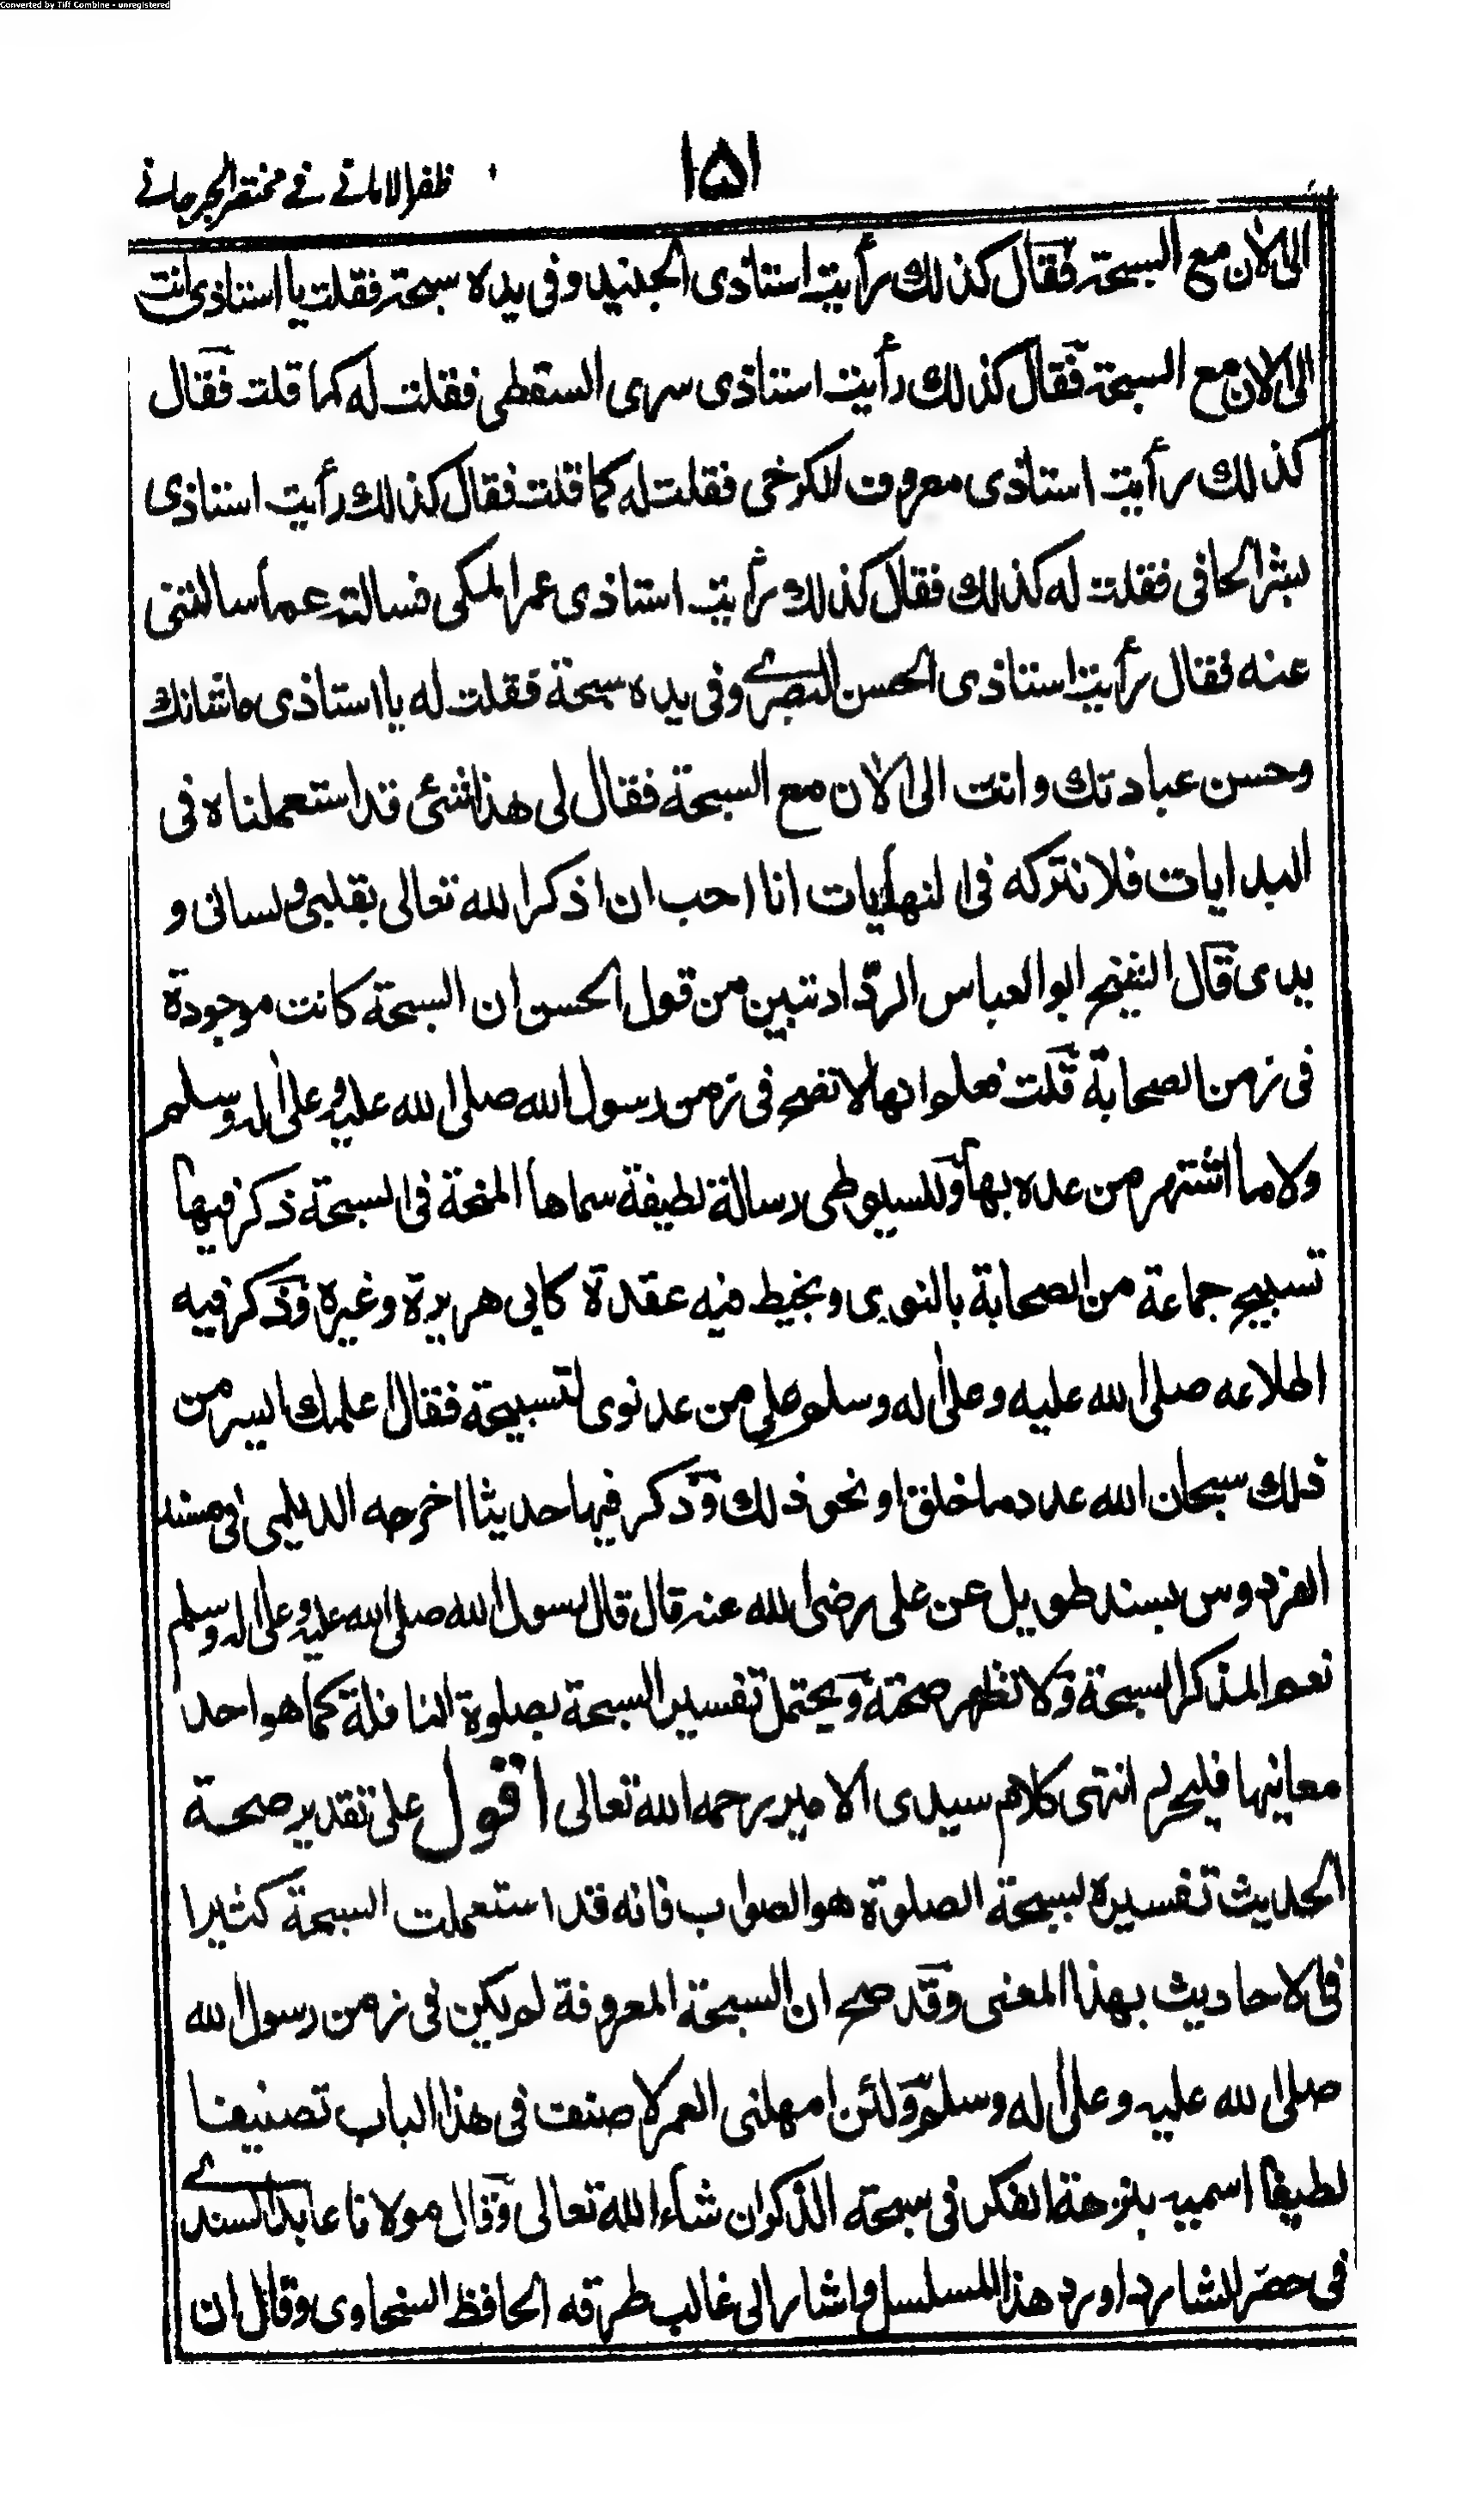 Converted by Tiff Combine - unregistered
١٥١
ظفر الامانى فے مختصر الجرجانے
الى الآن مع السبحة فقال كذلك رأيت استاذى الجنيد وفى يده سبحة فقلت يا استاذى انت
الى الآن مع السبحة فقال كذلك رأيت استاذى سرى السقطى فقلت له كما قلت فقال
كذلك رأيت استاذى معروف الكرخى فقلت له كما قلت فقال كذلك رأيت استاذى
بشر الحافى فقلت له كذلك فقال كذلك رأيت استاذى عمر المكى فسالته عما سالتنى
عنه فقال رأيت استاذى الحسن البصرے وفى يده سبحة فقلت له يا استاذى ما شانك
وحسن عبادتك وانت الى الآن مع السبحة فقال لى هذا شئ قد استعملناه فى
البدايات فلا نتركه فى النهايات انا احب ان اذكر الله تعالى بقلبى ولسانى و
يدى قال الشيخ ابو العباس الردّاد تبين من قول الحسن ان السبحة كانت موجودة
فى زمن الصحابة قلت فعلوا بها لا تصح فى زمن رسول الله صلى الله عليه وعلى اله وسلم
ولا ما اشتهر من عده بها وللسيوطى رسالة لطيفة سماها المنحة فى السبحة ذكر فيها
تسبيح جماعة من الصحابة بالنوى وبخيط فيه عقدة كابى هريرة وغيره وذكر فيه
اطلاعه صلى الله عليه وعلى اله وسلم على من عد نوى لتسبيحة فقال اعلمك ايسر من
ذلك سبحان الله عدد ما خلق او نحو ذلك وذكر فيها حديثا اخرجه الديلمى فى مسند
الفردوس بسند طويل عن على رضى الله عنه قال قال رسول الله صلى الله عليه وعلى اله وسلم
نعم المذكر السبحة ولا تظهر صحته ويحتمل تفسير السبحة بصلوة النافلة كما هو احد
معانيها فليحرر انتهى كلام سيدى الامير رحمه الله تعالى اقول على تقدير صحة
الحديث تفسيره بسبحة الصلوة هو الصواب فانه قد استعملت السبحة كثيرا
فى الاحاديث بهذا المعنى وقد صح ان السبحة المعروفة لم يكن فى زمن رسول الله
صلى الله عليه وعلى اله وسلم ولئن امهلنى العمر لاصنف فى هذا الباب تصنيفا
لطيفا اسميه بنزهة الفكر فى سبحة الذكر ان شاء الله تعالى وقال مولانا عابد السندے
فى حصر الشارد اورد هذا المسلسل واشار الى غالب طرقه الحافظ السخاوى وقال ان